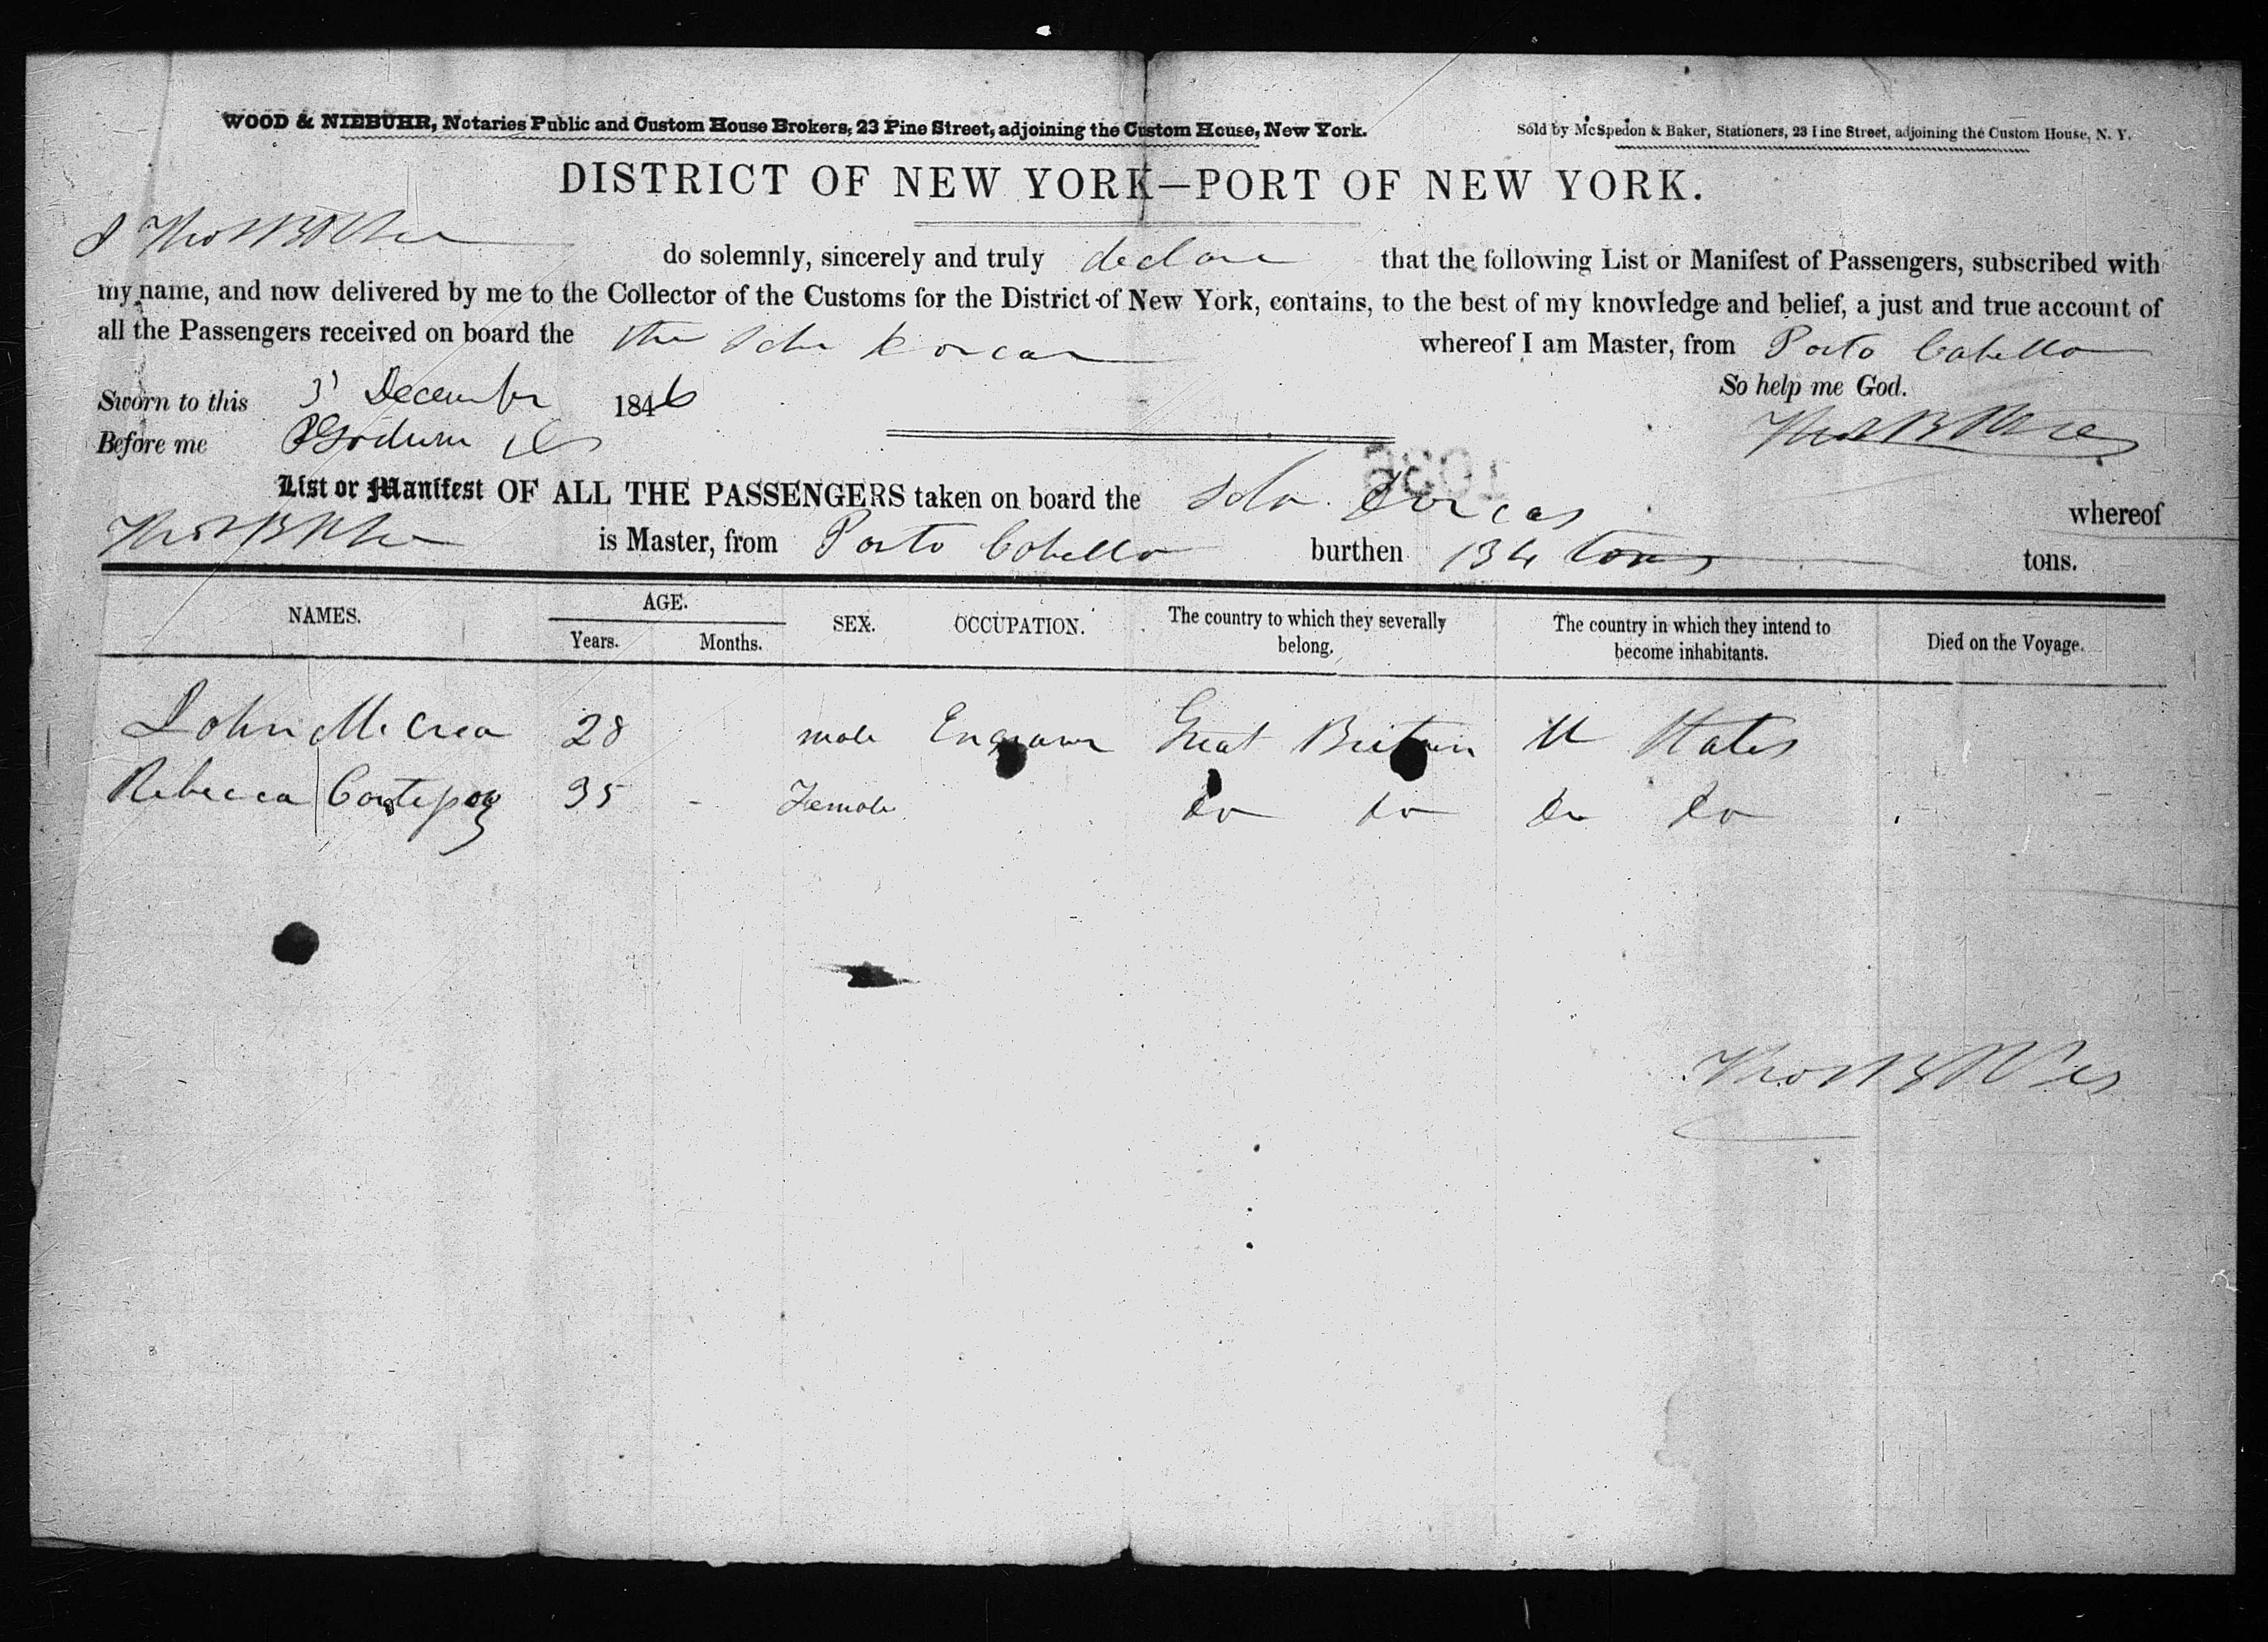 WOOD & NIEBUHR, Notaries Public and Custom House Brokers, 23 Pine Street, adjoining the Custom House, New York.
Sold by McSpedon & Baker, Stationers, 23 Pine Street, adjoining the Custom House, N. Y.
DISTRICT OF NEW YORK—PORT OF NEW YORK.
I Thos do solemnly, sincerely and truly declare that the following List or Manifest of Passengers, subscribed with
my name, and now delivered by me to the Collector of the Customs for the District of New York, contains, to the best of my knowledge and belief, a just and true account of
all the Passengers received on board the the Schr Dorcas whereof I am Master, from Porto Cabello
So help me God.
Sworn to this 3 December 1846
Before me
List or Manifest OF ALL THE PASSENGERS taken on board the Schr. Dorcas whereof
Thos is Master, from Porto Cabello burthen 134 tons tons.
NAMES. AGE. SEX. OCCUPATION. The country to which they severally belong. The country in which they intend to become inhabitants. Died on the Voyage.
Years. Months.
John McCrea 28 male Engraver Great Britain U States
Rebecca 35 - Female do do do do
Thos